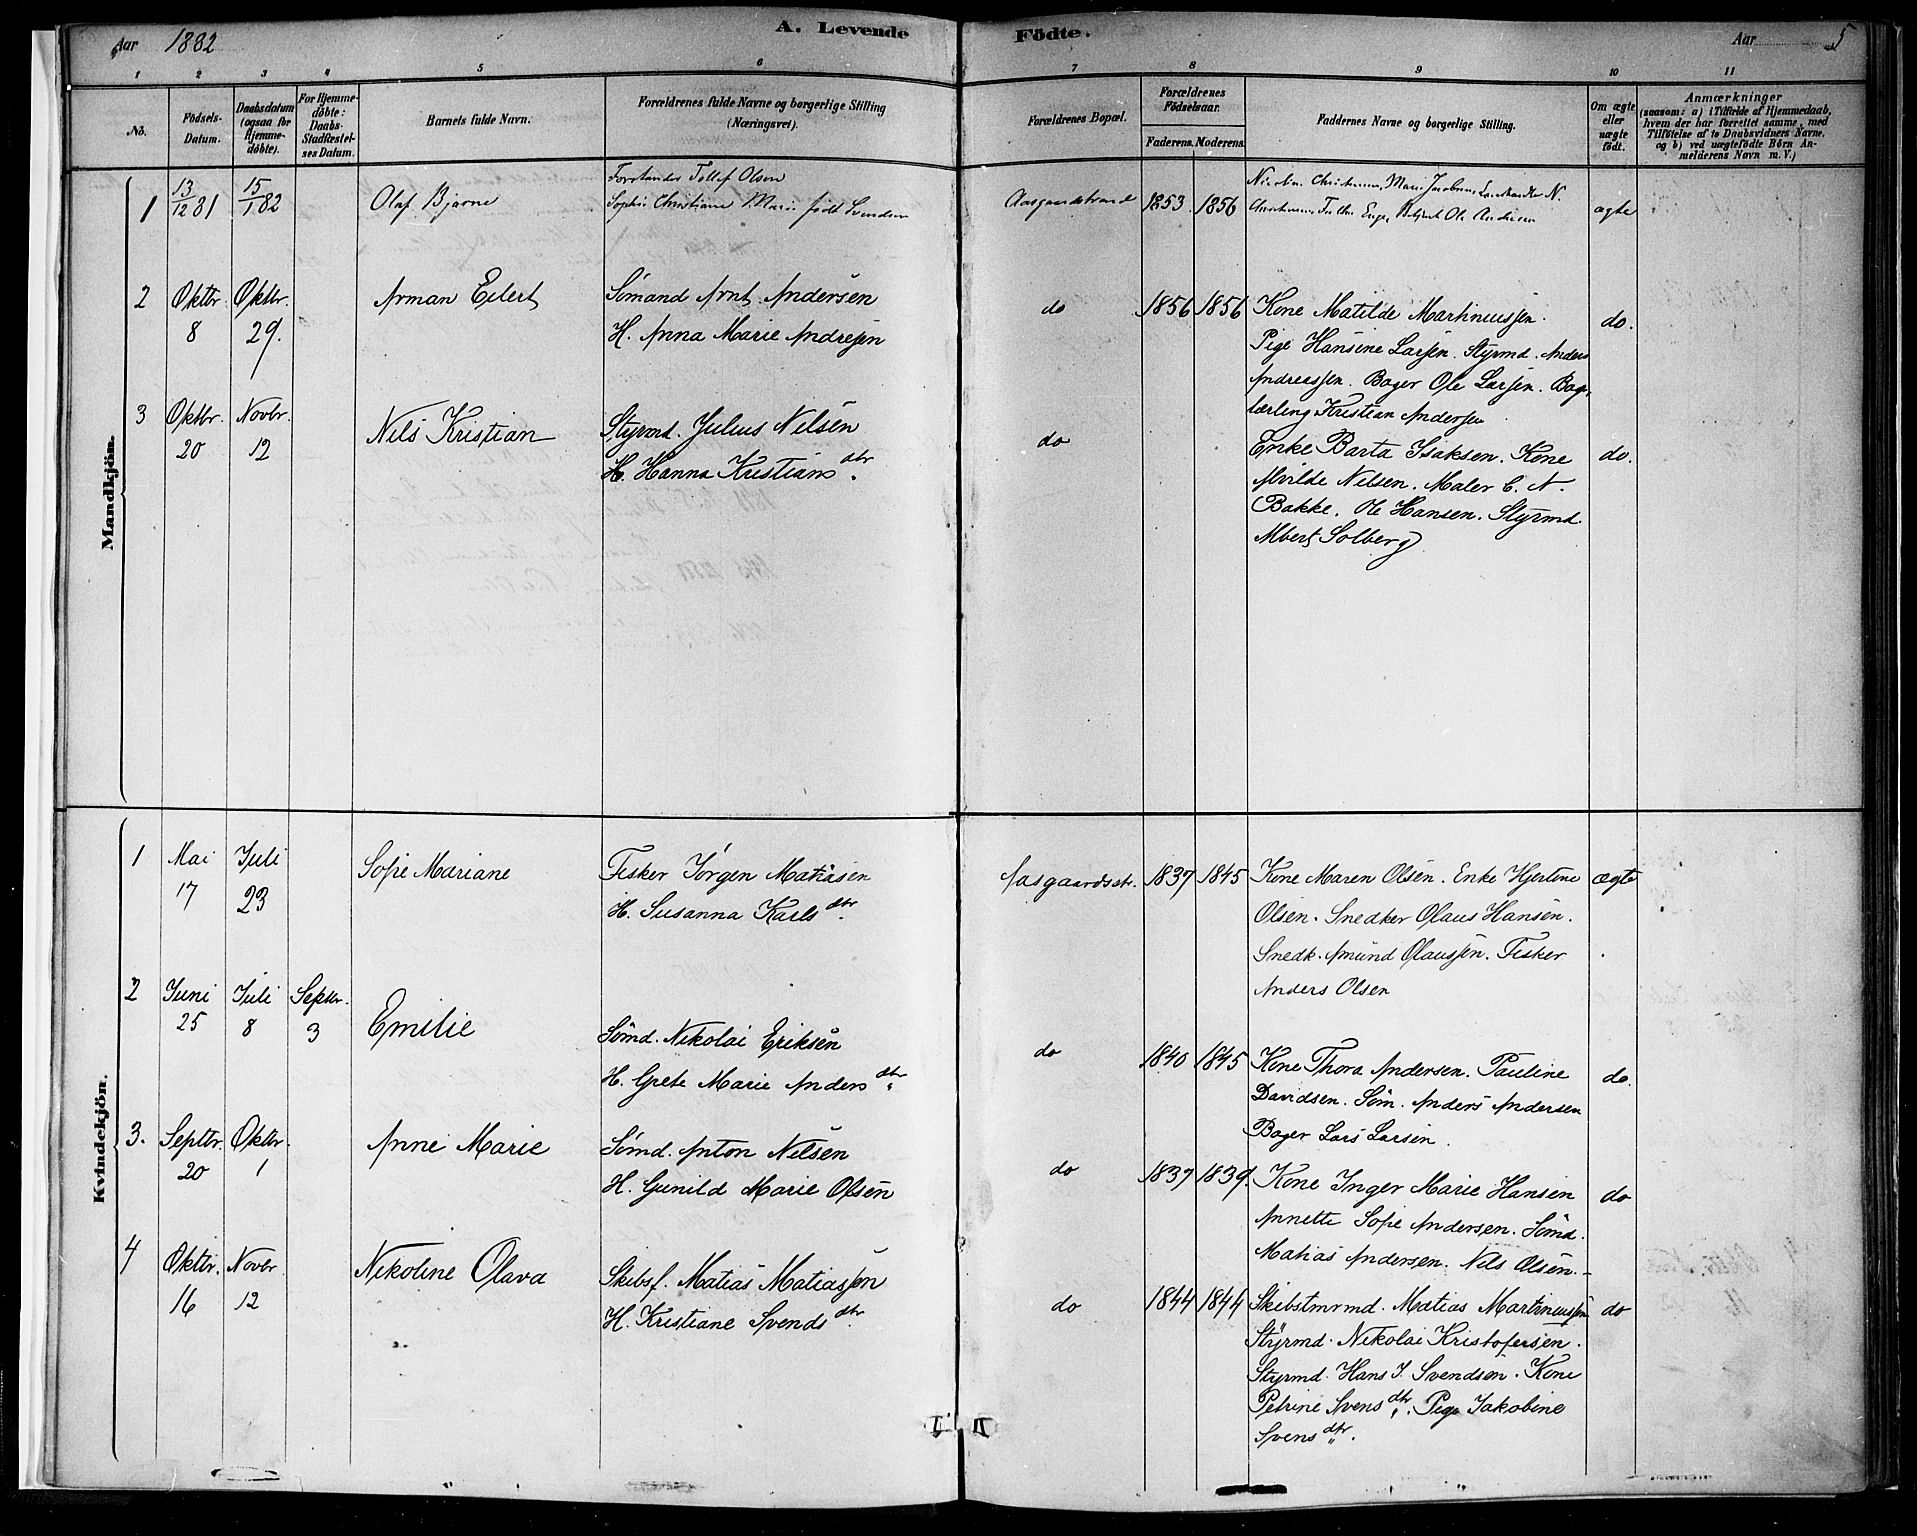 Aar 1882
A. Levende
Födte.
Aar
5
1 2 3 4 5 6 7 8 9 10 11
No.
Födsels-
Datum.
Daabsdatum
(ogsaa for
Hjemme-
döbte).
For Hjemme-
döbte:
Daabs-
Stadfæstel-
ses Datum.
Barnets fulde Navn.
Forældrenes fulde Navne og borgerlige Stilling
(Næringsvei).
Forældrenes Bopæl.
Forældrenes
Födselsaar.
Faderens. Moderens.
Faddernes Navne og borgerlige Stilling.
Om ægte
eller
uægte
födt.
Anmærkninger
(saasom: a) i Tilfælde af Hjemmedaab,
hvem der har forrettet samme, med
Tilföielse af to Daabsvidners Navne,
og b) ved uægtefödte Börn An-
melderens Navn m. V.)
Mandkjön.
1
13/12 81
15/1 82
Olaf Bjarne
Forstander Tollef Olsen
Sophie Christiane Marie født Svendsen
Aasgaardstrand
1853 1856
Christensen, Marie Jacobsen, N.
Ole Andersen
ægte
2
Oktbr. 8
Oktbr. 29.
Arman Eilert
Sömand Arnt Andersen
H. Anna Marie Andresen
do
1856 1856
Kone Matilde Martinussen.
Pige Hansine Larsen. Styrmd. Anders
Andreassen. Bager Ole Larsen. Bag.
lærling Kristian Andersen
do.
3
Oktbr. 20
Novbr. 12
Nils Kristian
Styrmd. Julius Nilsen
H. Hanna Kristians dtr.
do
Enke Barta Isaksen. Kone
Alvilde Nilsen. Maler C. A.
Bakke. Ole Hansen. Styrmd.
Albert Solberg
do.
Kvindekjön.
1
Mai 17
Juli 23
Sofie Mariane
Fisker Jörgen Matiasen
H. Susanna Karls dtr.
Aasgaardsstr.
1837 1845
Kone Maren Olsen. Enke Hjertine
Olsen. Snedker Olaus Hansen.
Snedk. Amund Olaussen. Fisker
Anders Olsen
ægte
2
Juni 25
Juli 8
Septbr. 3
Emilie
Sömd. Nikolai Eriksen
H. Grete Marie Anders dtr.
do
1840 1845
Kone Thora Andersen. Pauline
Davidsen. Söm. Anders Andersen
Bager Lars Larsen.
do.
3.
Septbr. 20
Oktbr. 1
Anne Marie
Sömd. Anton Nilsen
H. Gunild Marie Olsen
do
1837 1839.
Kone Inger Marie Hansen
Annette Sofie Andersen. Sömd.
Matias Andersen. Nils Olsen.
do
4
Oktbr. 16
Novbr 12
Nikoline Olava
Skibsf. Matias Matiassen
H. Kristiane Svends dtr.
do
1844 1844
Skibstmrmd. Matias Martinussen
Styrmd. Nikolai Kristofersen.
Styrmd. Hans J. Svendsen. Kone
Petrine Svens dtr. Pige Jakobine
Svens dtr.
do